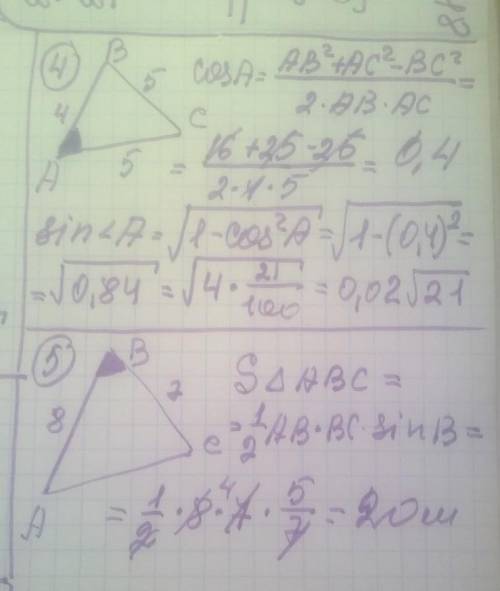 ④
B
4
5
C
A
5
cosA = (AB² + AC² - BC²) / (2·AB·AC) =
= (16 + 25 - 25) / (2·4·5) = 0,4
sin∠A = √(1 - cos²A) = √(1 - (0,4)²) =
= √0,84 = √(4 · 21/100) = 0,02√21
⑤
B
8
7
C
A
S△ABC =
= 1/2 AB·BC·sinB =
= 1/2 · 8 ⁴ · 7 · 5/7 = 20